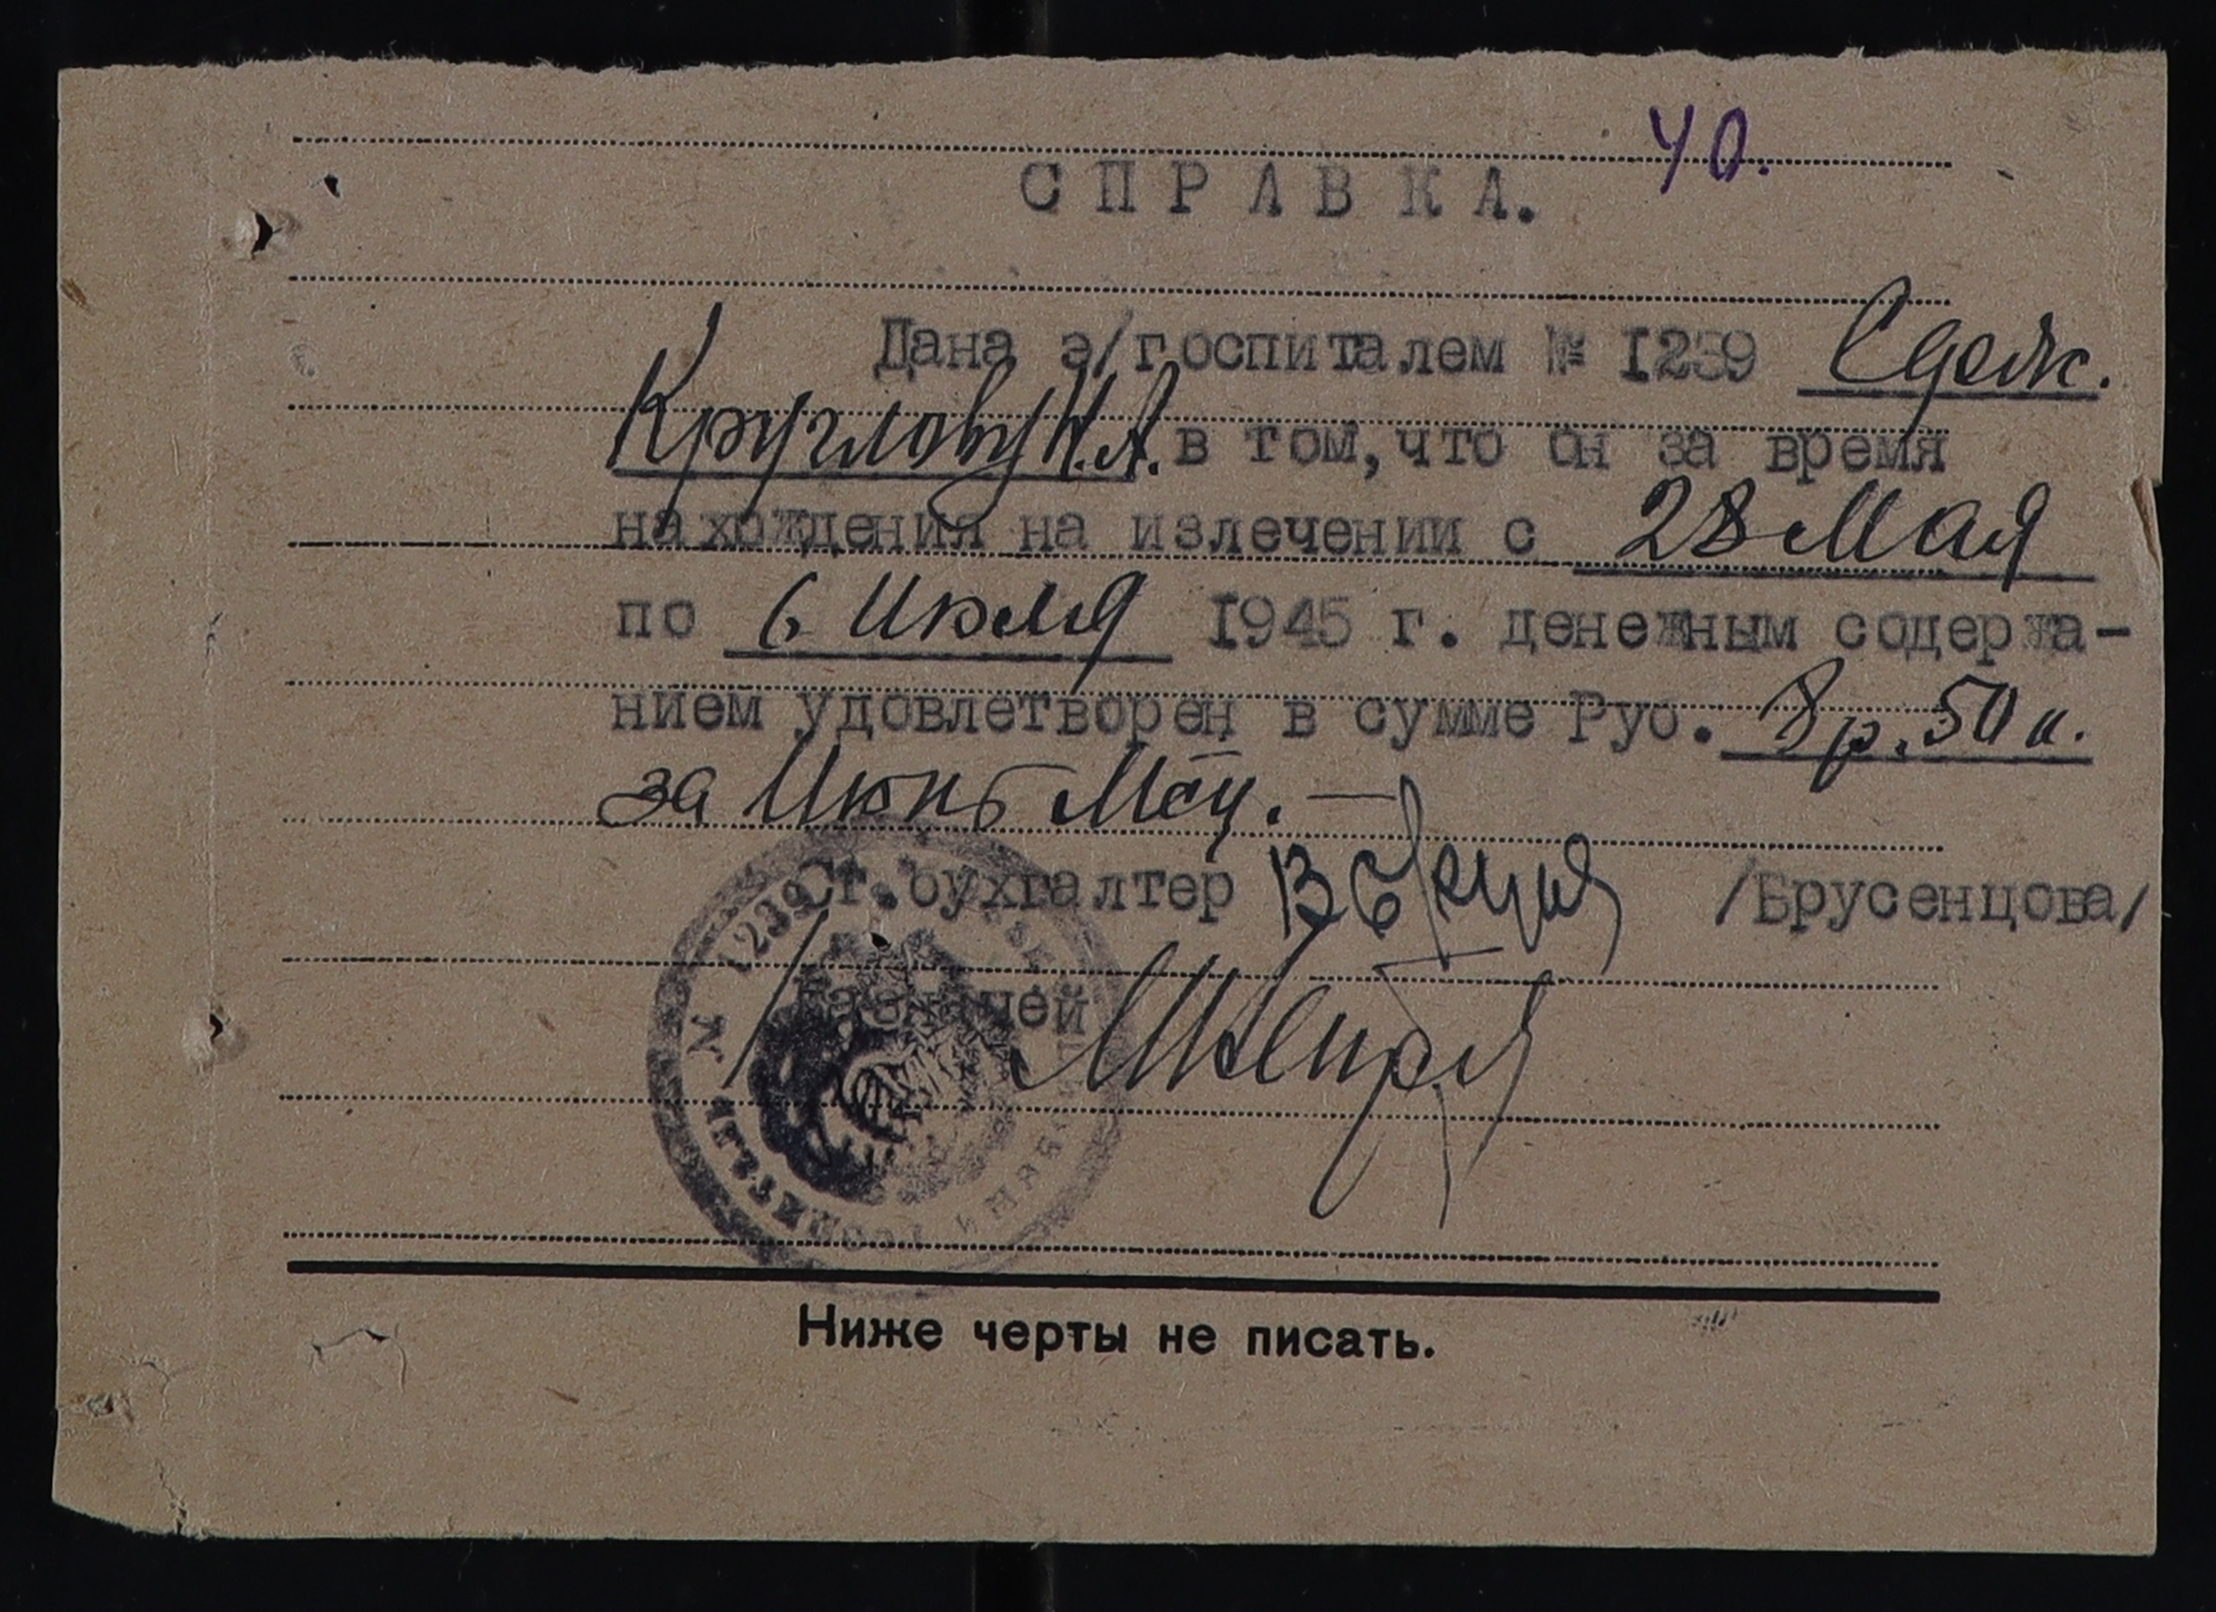 40.
СПРАВКА.
Дана э/госпиталем № 1239
Круглову Н.А. в том, что он за время
нахождения на излечении с 28 Мая
по 6 Июля 1945 г. денежным содержа-
нием удовлетворен в сумме Руб. 8 р. 50 к.
за Июнь М-ц. —
Ст. бухгалтер /Брусенцова/
Казначей
№ 1239
ГОСПИТАЛЬ
Ниже черты не писать.